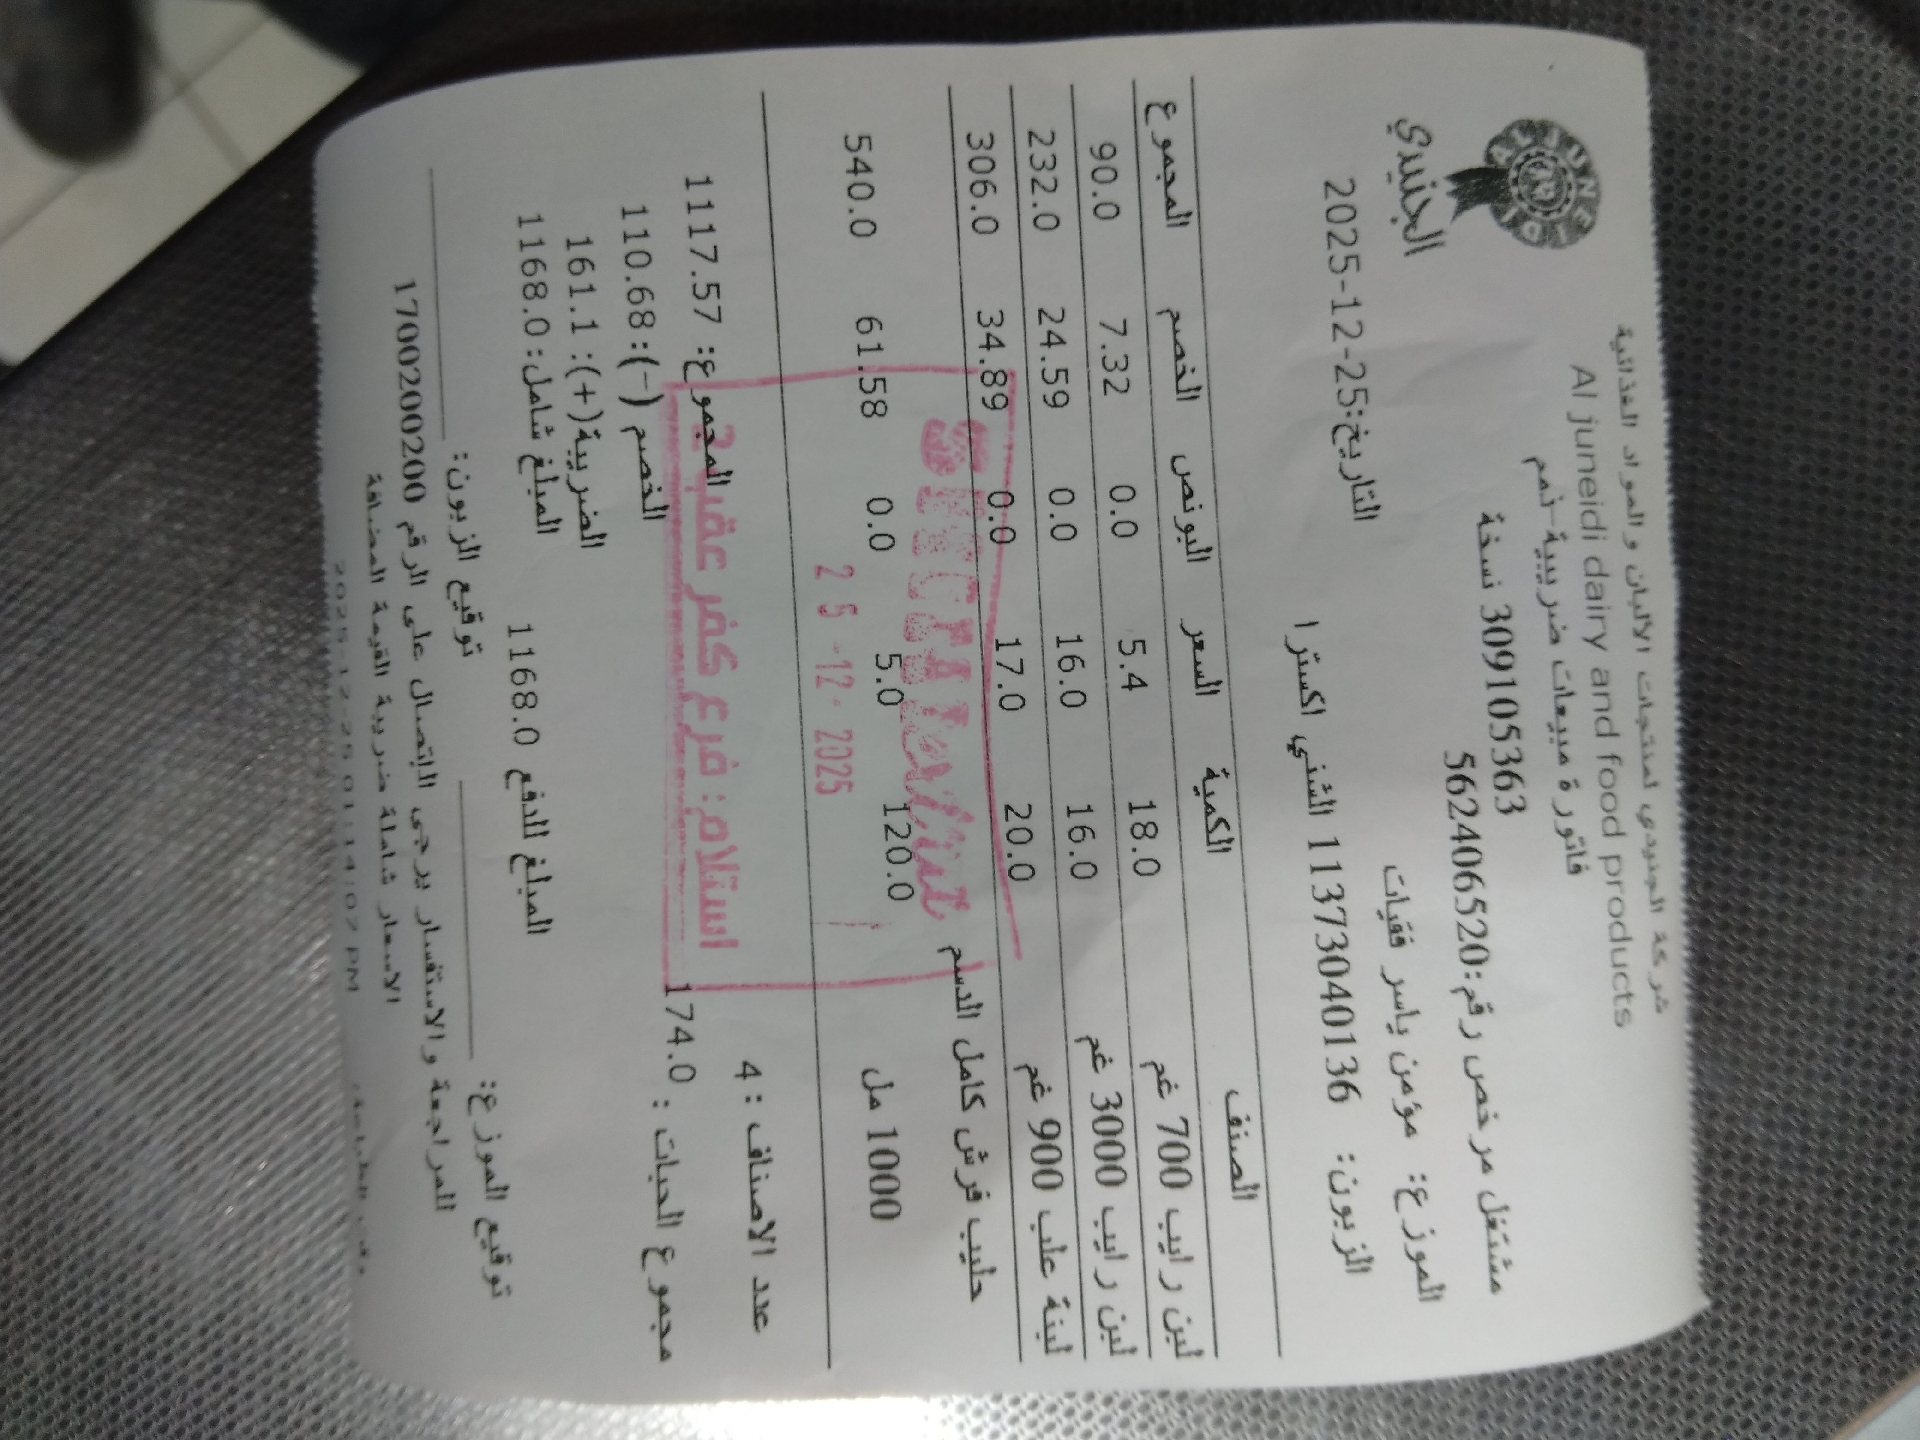 شركة الجنيدي لمنتجات الالبان والمواد الغذائية
Al juneidi dairy and food products
AL JUNEIDI
الجنيدي
فاتورة مبيعات ضريبية-ذمم
309105363 نسخة
مشتغل مرخص رقم:562406520
الموزع: مؤمن ياسر فقيات
التاريخ:25-12-2025
الزبون: 1137304013‎6 الشني اكسترا
الصنف الكمية السعر البونص الخصم المجموع
لبن رايب 700 غم 18.0 5.4 0.0 7.32 90.0
لبن رايب 3000 غم 16.0 16.0 0.0 24.59 232.0
لبنة علب 900 غم 20.0 17.0 0.0 34.89 306.0
حليب فرش كامل الدسم
1000 مل 120.0 5.0 0.0 61.58 540.0
25-12-2025
استلام: فرع كفر عقب 2
عدد الاصناف : 4 المجموع: 1117.57
مجموع الحبات : 174.0 الخصم (-): 110.68
الضريبة(+): 161.1
المبلغ شامل: 1168.0
المبلغ للدفع 1168.0
توقيع الموزع: توقيع الزبون:
للمراجعة والاستفسار يرجى الاتصال على الرقم 1700200200
الاسعار شاملة ضريبة القيمة المضافة
2025-12-25 01:14:07 PM